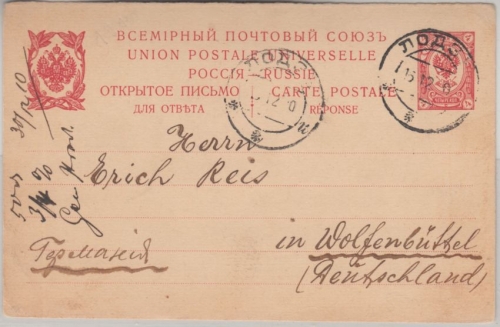 ВСЕМІРНЫЙ ПОЧТОВЫЙ СОЮЗЪ
UNION POSTALE UNIVERSELLE
РОССІЯ RUSSIE
ОТКРЫТОЕ ПИСЬМО CARTE POSTALE
ДЛЯ ОТВѢТА RÉPONSE
ЛОДЗ
ЛОДЗ
Herrn
Erich Reis
in Wolfenbüttel
(Deutschland)
Германія